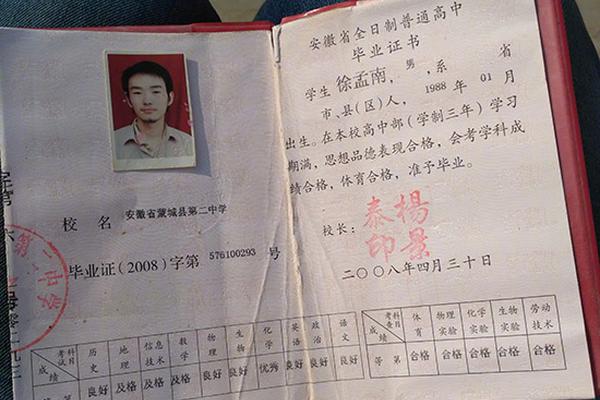 校 名 安徽省蒙城县第二中学
毕业证（2008）字第 576100293 号
第二中学
考试科目 成绩 历史 地理 信息技术 数学 物理 生物 化学 英语 政治 语文
等 第 良好 及格 及格 及格 良好 良好 优秀 良好 良好 良好
安徽省全日制普通高中
毕业证书
学生 徐孟南，男，系 省
市、县（区）人，1988 年 01 月
出生。在本校高中部（学制三年）学习
期满，思想品德表现合格，会考学科成
绩合格，体育合格，准予毕业。
校长：
楊景泰印
二〇〇八年四月三十日
考查科目 成绩 体育 物理实验 化学实验 生物实验 劳动技术
等 第 合格 合格 合格 合格 合格